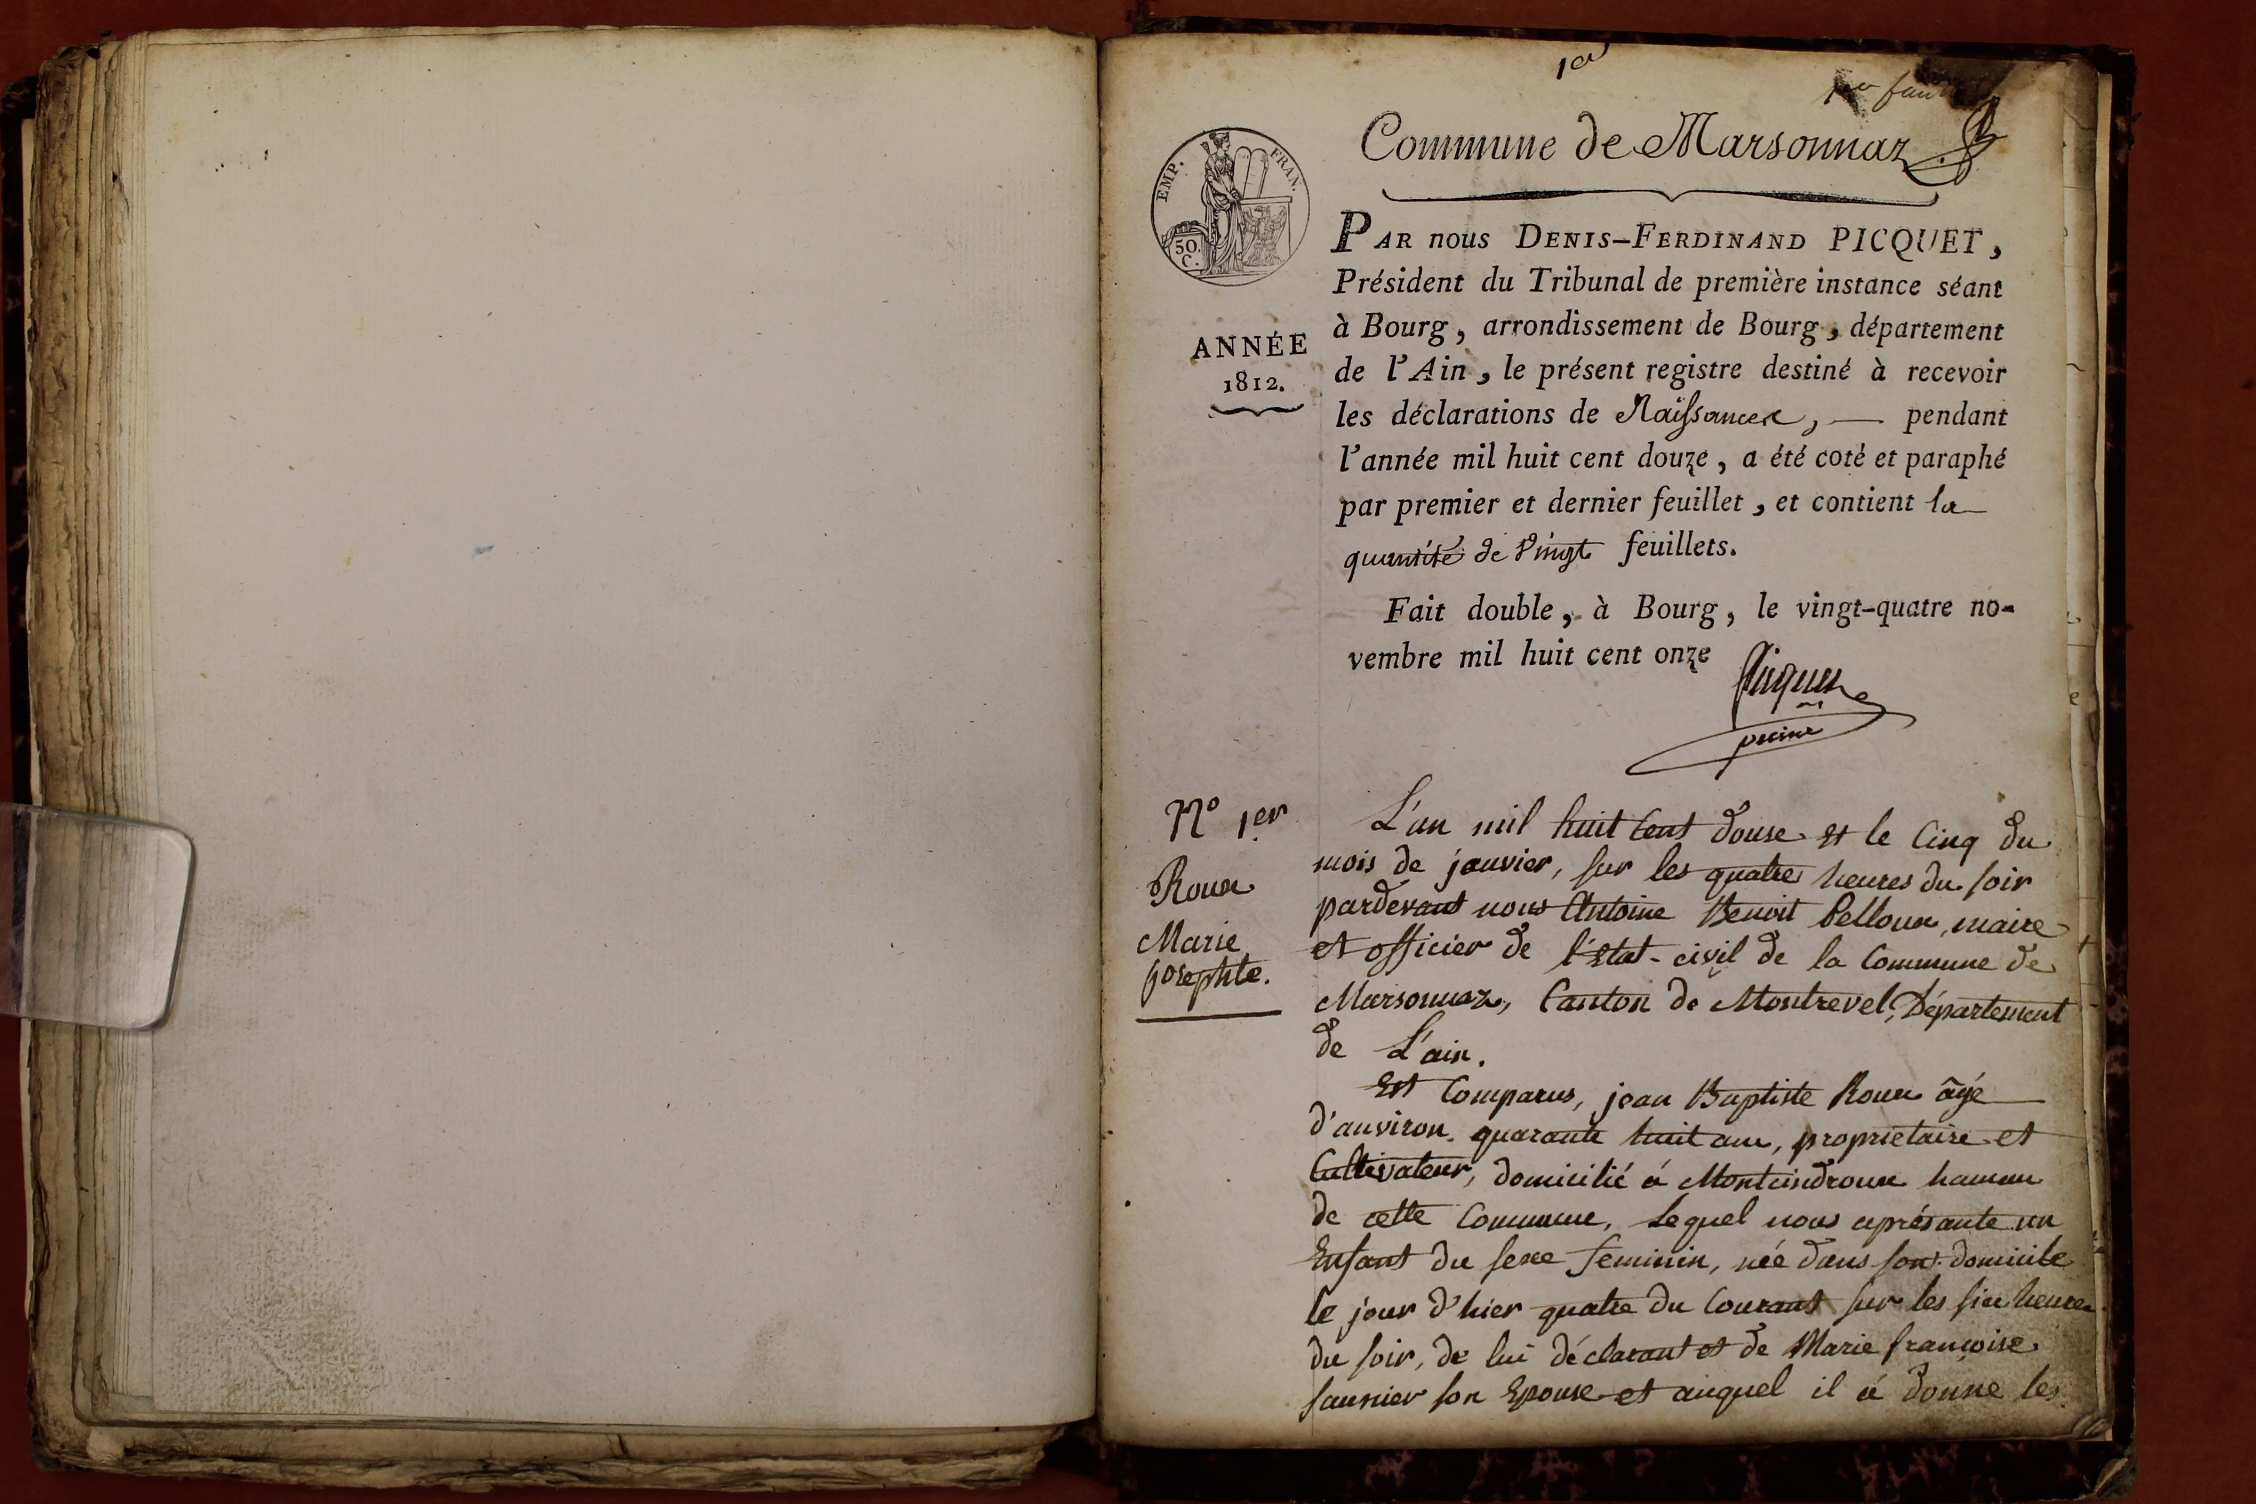 1er
1er feuil
Commune de Marsonnaz
EMP. FRAN.
50. C.
ANNÉE
1812.
PAR nous DENIS-FERDINAND PICQUET,
Président du Tribunal de première instance séant
à Bourg, arrondissement de Bourg, département
de l'Ain, le présent registre destiné à recevoir
les déclarations de Naissances, — pendant
l'année mil huit cent douze, a été coté et paraphé
par premier et dernier feuillet, et contient la
quantité de Vingt feuillets.
Fait double, à Bourg, le vingt-quatre no-
vembre mil huit cent onze
Picquet
N° 1er
Roux
Marie
josephte.
L'an mil huit Cent douse et le Cinq du
mois de janvier, sur les quatre heures du soir
pardevant nous Antoine Benoit Pelloux, maire
et officier de l'Etat-civil de la Commune de
Marsonnaz, Canton de Montrevel, Département
de L'ain.
Est Comparus, jean Baptiste Roux âgé
d'anviron quarante huit ans, propriétaire et
Cultivateur, domicilié à Montcindroux hameau
de cette Commune, Lequel nous aprésante un
Enfant du sexe feminin, née dans son domicile
le jour d'hier quatre du Courant sur les six heures
du soir, de lui déclarant et de Marie françoise
saunier son Epouse et auquel il à donné les